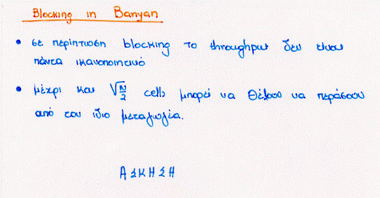 Blocking in Banyan
• σε περίπτωση blocking το throughput δεν είναι
πάντα ικανοποιητικό
• μέχρι και √N/2 cells μπορεί να θέλουν να περάσουν
από τον ίδιο μεταγωγέα.
ΑΣΚΗΣΗ